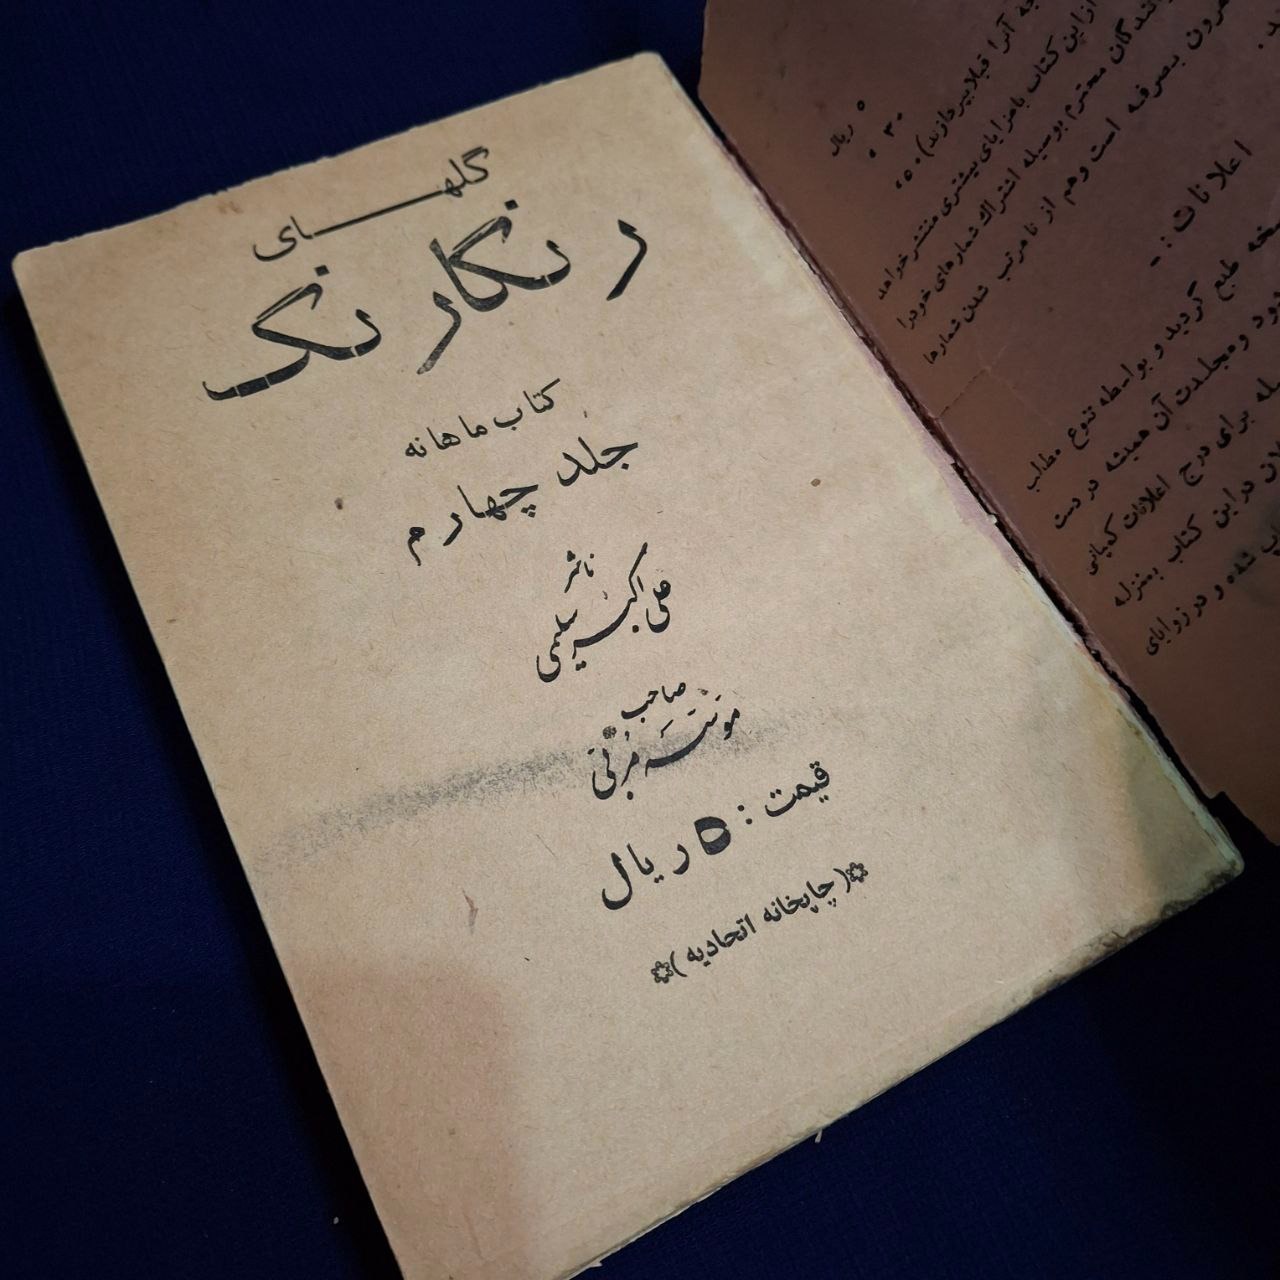 گلهای
رنگارنگ
کتاب ماهانه
جلد چهارم
ناشر
علی اکبر سلیمی
صاحب
موسسه مزینی
قیمت : ۵ ریال
( چاپخانه اتحادیه )
آنرا قبلا بپردازند )
۵ ریال
۳۰ »
۵۰ »
از این کتاب با مزایای بیشتری منتشر خواهد
محترم بوسیله اشتراك شمارهای خودرا
مقرون بصرفه است وهم از نامرتب شدن شمارها
اعلانات :-
طبع گردید و بواسطه تنوع مطالب
ومجلدات آن همیشه در دست
برای درج اعلانات کمپانی
در این کتاب بمنزله
شده و در زوایای